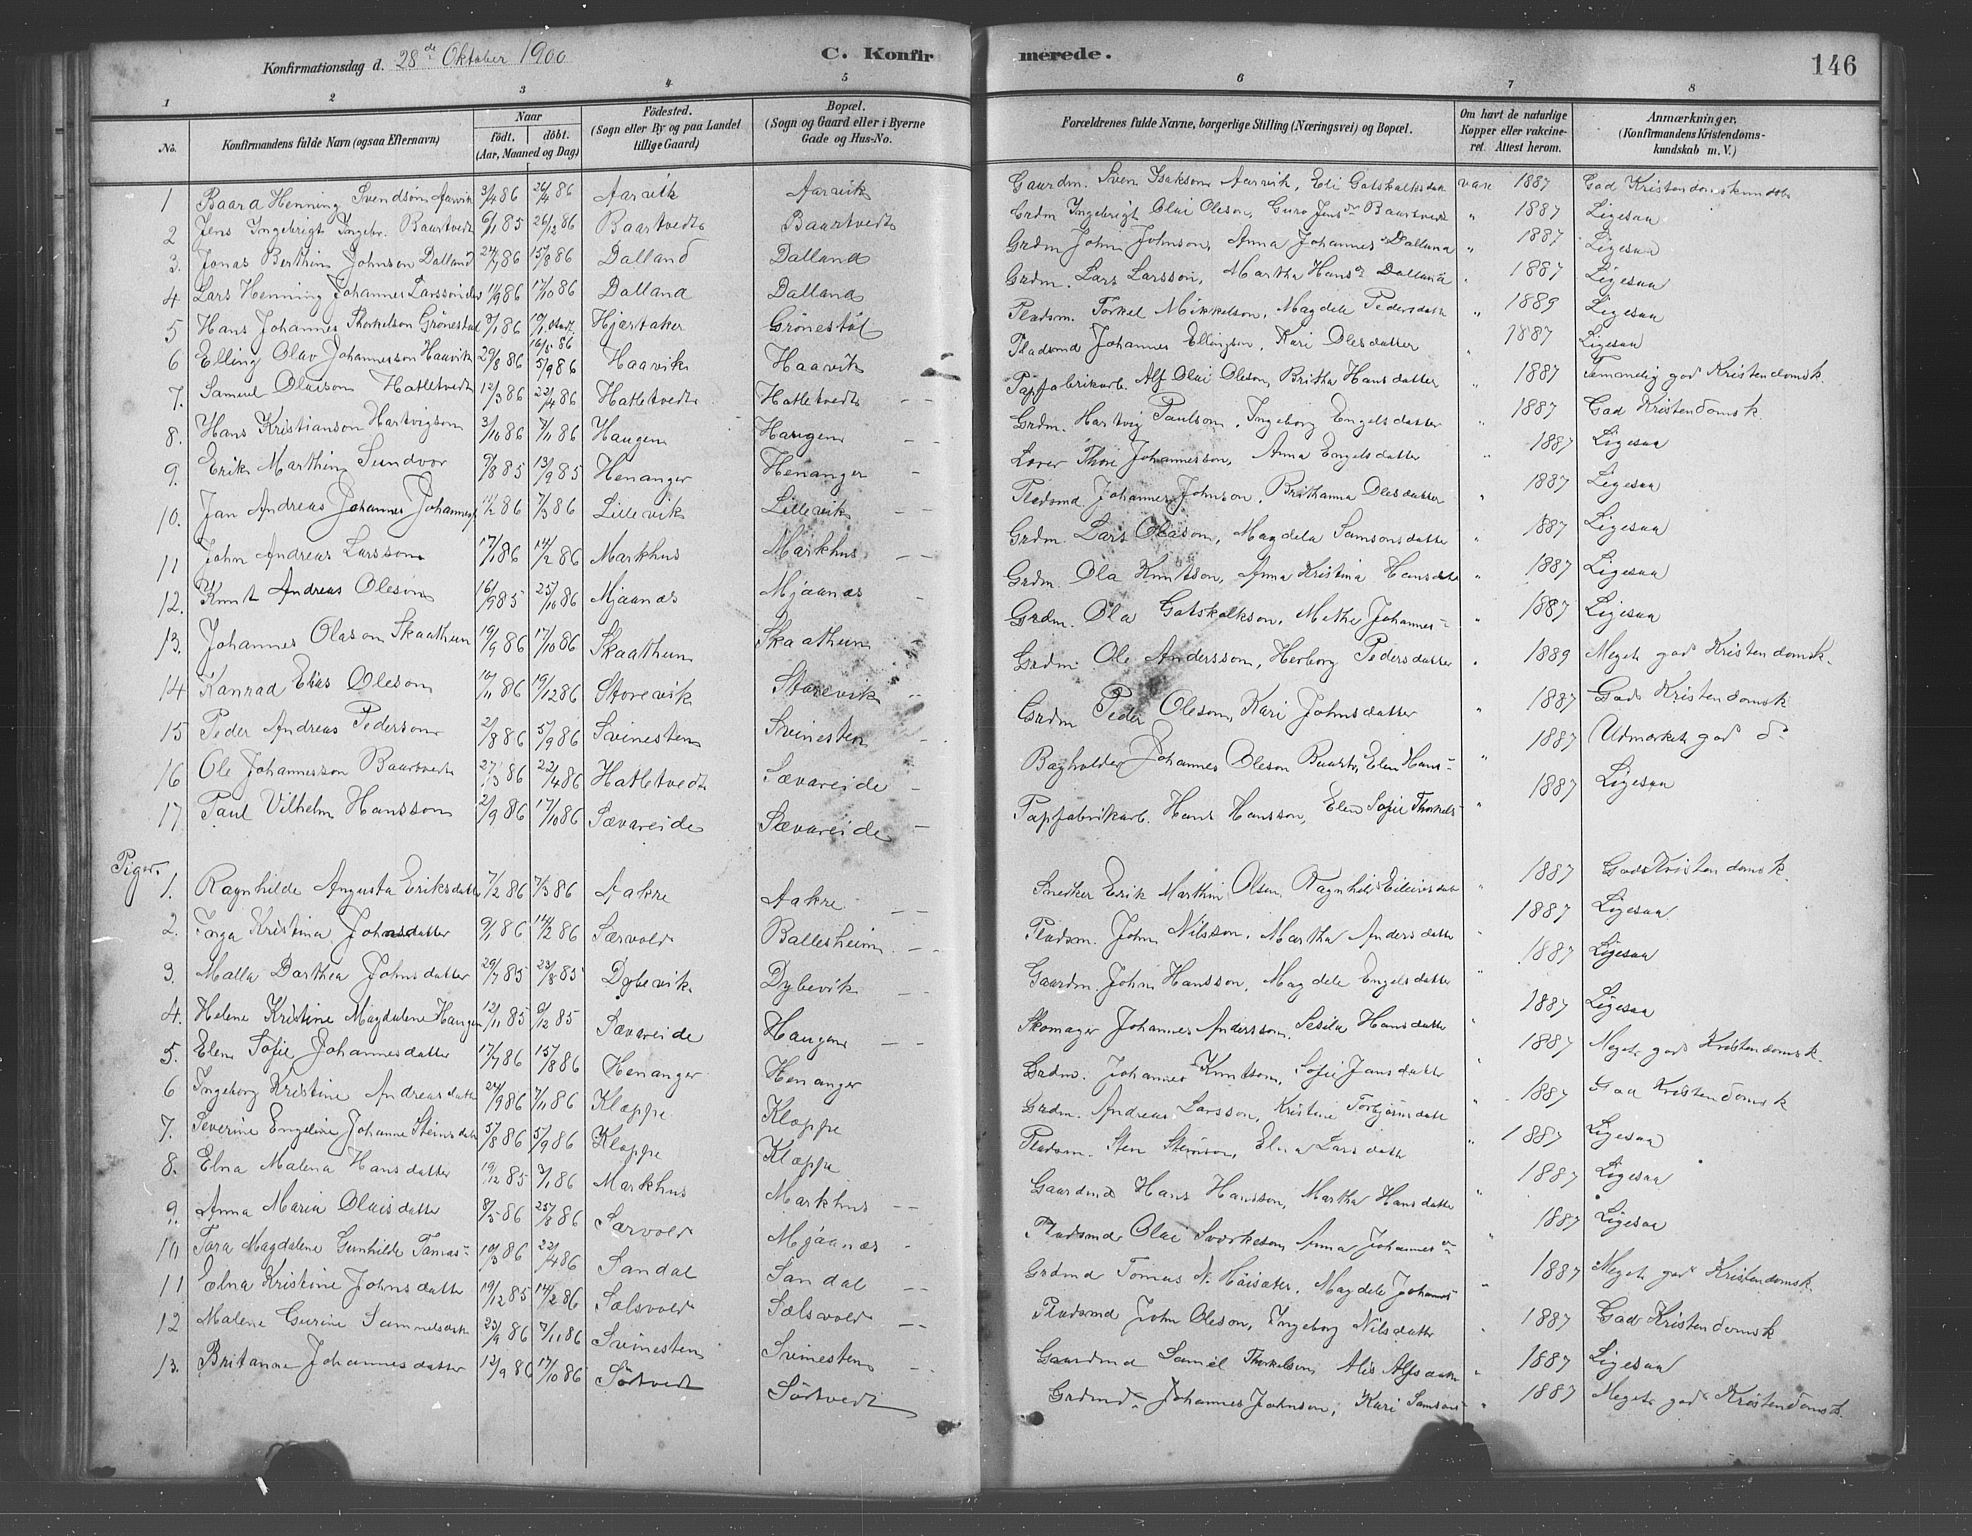 Konfirmationsdag d. 28de Oktober 1900 C. Konfirmerede. 146
1 2 3 4 5 6 7 8
No. Konfirmandens fulde Navn (ogsaa Efternavn) Naar födt. döbt. (Aar, Maaned og Dag) Födested. (Sogn eller By og paa Landet tillige Gaard) Bopæl. (Sogn og Gaard eller i Byerne Gade og Hus-No. Forældrenes fulde Navne, borgerlige Stilling (Næringsvei) og Bopæl. Om havt de naturlige Kopper eller vakcineret. Attest herom. Anmærkninger. (Konfirmandens Kristendomskundskab m. V.)
1 Baard Henning Svendson Aarvik 3/4 86 26/4 86 Aarvik Aarvik Gaardm. Sven Isakson Aarvik, Eli Gatskalksdatt vac 1887 God Kristendomskundsk
2 Jens Ingebrigt Ingebr. Baartvedt 6/11 85 26/12 86 Baartvedt Baartvedt Grdm Ingebrigt Olai Oleson, Guro Jensdr Baartvedt " 1887 Ligesaa
3. Jonas Berthin Johnson Dalland 24/7 86 15/8 86 Dalland Dalland Grdm John Johnson, Anna Johannesd Dalland " 1887 Ligesaa
4 Lars Henning Johannes Larsson 11/9 86 17/10 86 Dalland Dalland Grdm. Lars Larsson, Martha Hansdr Dalland " 1887 Ligesaa
5 Hans Johannes Thorkelson Grönestöl 3/1 86 Hjartaker Grönestöl Pladsm. Torkel Mikkelson, Magdele Pedersdatter " 1889 Ligesaa
6 Elling Olav Johannesson Haavik 29/8 86 5/9 86 Haavik Haavik Pladsmd Johannes Ellingson, Kari Olesdatter " 1887 Ligesaa
7. Samuel Olaison Hatletvedt 12/3 86 22/4 86 Hatletvedt Hatletvedt Papfabrikarb. Alf Olai Oleson, Britha Hansdatter " 1887 Temmelig god Kristendomsk.
8. Hans Kristianson Hartvigson 3/10 86 7/11 86 Haugen Haugen Grdm. Hartvig Paulson, Ingeborg Engelsdatter " 1887 God Kristendomsk.
9. Erik Marthin Sundvor 9/8 85 13/9 85 Henanger Henanger Thore Johannesson, Anna Engelsdatter " 1887 Ligesaa
10. Jan Andreas Johannes Johannes 11/2 86 7/3 86 Lillevik Lillevik Pladsmd Johannes Johnson, Brithanna Olesdatter " 1887 Ligesaa
11 John Andreas Larsson 17/1 86 14/2 86 Markhus Markhus Grdm. Lars Olason, Magdela Samsonsdatter " 1887 Ligesaa
12. Knut Andreas Oleson 16/9 85 25/10 86 Mjaanæs Mjaanæs Grdm. Ola Knutson, Anna Kristina Hansdatt " 1887 Ligesaa
13. Johannes Olason Skaathun 19/9 86 17/10 86 Skaathun Skaathun Grdm. Ola Gatskalkson, Methe Johannes- " 1887 Ligesaa
14 Kanrad Elias Oleson 10/11 86 19/12 86 Storevik Storevik Grdm. Ole Andersson, Herborg Pedersdatter " 1889 Meget god Kristendomsk.
15 Peder Andreas Pederson 2/8 86 5/9 86 Svinesten Svinesten Grdm Peder Oleson, Kari Johnsdatter " 1887 God Kristendomsk
16 Ole Johannesson Baartvedt 27/3 86 22/4 86 Hatletvedt Sævareide Johannes Oleson Baart, Elen Hans- " 1887 Udmerket god do
17 Paul Vilhelm Hansson 2/9 86 17/10 86 Sævareide Sævareide Papfabrikarb. Hans Hansson, Elen Sofie Thorkels- " 1887 Ligesaa
Piger.
1. Ragnhilde Augusta Eriksdatt 7/2 86 7/3 86 Aakre Aakre Snedker Erik Marthin Olsen, Ragnhild Eilertsdatt " 1887 God Kristendomsk.
2. Inga Kristina Johnsdatter 9/1 86 14/2 86 Særvold Ballesheim Pladsm. John Nilsson, Martha Andersdatter " 1887 Ligesaa
3. Malla Darthea Johnsdatter 29/7 85 23/8 85 Dybevik Dybevik Gaardm. John Hansson, Magdele Engelsdatter " 1887 Ligesaa
4. Helene Kristine Magdalene Haugen 12/11 85 6/12 85 Sævareide Haugen Skomager Johannes Andersson, Sesila Hansdatter " 1887 Ligesaa
5. Elen Sofie Johannesdatter 17/7 86 15/8 86 Henanger Henanger Grdm. Johannes Knutson, Sofie Jansdatter " 1887 Meget god Kristendomsk.
6 Ingeborg Kristine Andreasdatt 24/9 86 7/11 86 Kloppe Kloppe Grdm. Andreas Larsson, Kristine Torbjørnsdatt " 1887 God Kristendomsk
7. Severine Engeline Johanne Steinsdatt 5/8 86 5/9 86 Kloppe Kloppe Pladsm. Sten Stenson, Elna Larsdatter " 1887 Ligesaa
8. Elna Malena Hansdatter 19/12 85 3/1 86 Markhus Markhus Gaardmd Hans Hansson, Martha Hansdatter " 1887 Ligesaa
9. Anna Maria Olaisdatter 8/5 86 25/8 86 Særvold Mjaanæs Pladsmd Olai Sverkeson, Anna Johannes " 1887 Ligesaa
10. Tara Magdalene Gunhilde Tomas- 10/3 86 22/4 86 Sandal Sandal Grdmd Tomas N. Höisæter, Magdele Johannes- " 1887 Meget god Kristendomsk.
11 Elna Kristine Johnsdatter 19/12 85 14/2 86 Sælsvold Sælsvold Pladsmd John Oleson, Ingeborg Nilsdatter " 1887 God Kristendomsk
12 Malene Gurine Sammelsdatt 23/9 86 7/11 86 Svinesten Svinesten Gaardmd Samel Thorkelson, Alis Alfsdatter " 1887 Ligesaa
13. Britanna Johannesdatter 12/9 86 17/10 86 Sörtvedt Sörtvedt Grdmd Johannes Johnson, Kari Samsons- " 1887 Meget god Kristendomsk.